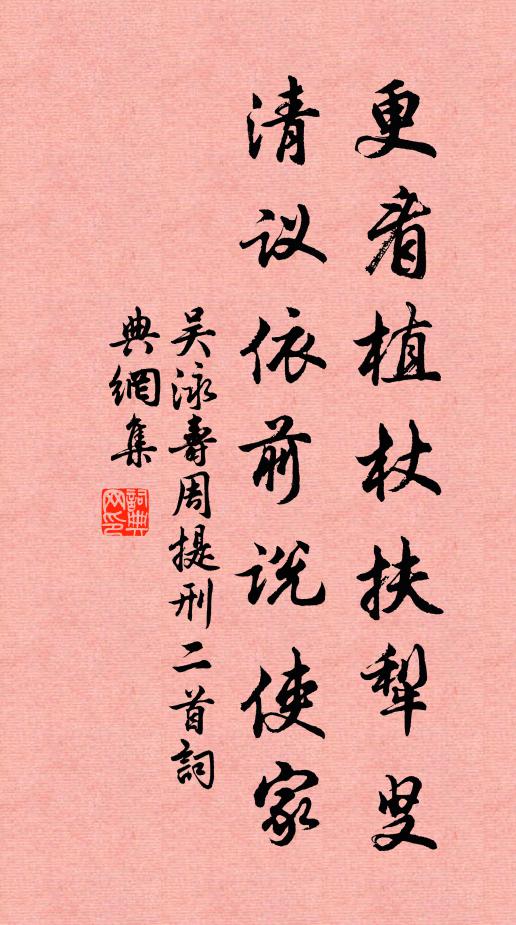 更看植杖扶犁叟
清议依前说使家
吴泳寿周提刑二首詞
典網集
詞典網印